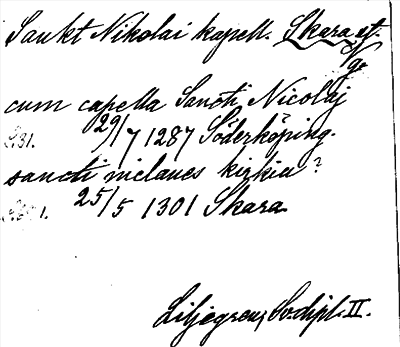 Sankt Nikolai kapell. Skara st.
Vg
cum capella Sancti Nicolaj
29/7 1287 Söderköping.
sancti niclaues kirkiu?
25/5 1301 Skara
Liljegren, Sv. dipl. II.